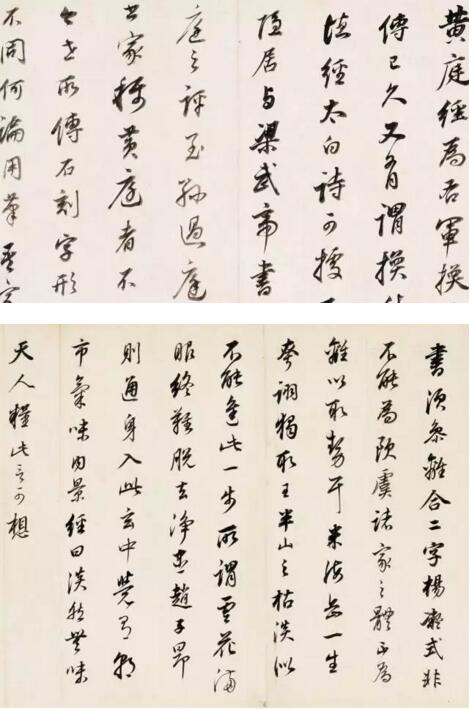 黄庭經為右軍換
傳已久又有謂換
德經太白詩可據
隱居與梁武帝書
庭之評至孫過庭
書家稱黄庭者不
世所傳石刻字形
不同何論用筆至宋
書須參離合二字楊凝式非
不能為歐虞諸家之體正為
離以取勢耳米海岳一生
夸詡獨取王半山之枯淡似
不能進此一步所謂雲花滿
眼終難脱去淨盡趙子昂
則通身入此玄中覺有朝
市氣味内景經曰淡然無味
天人糧此言可想